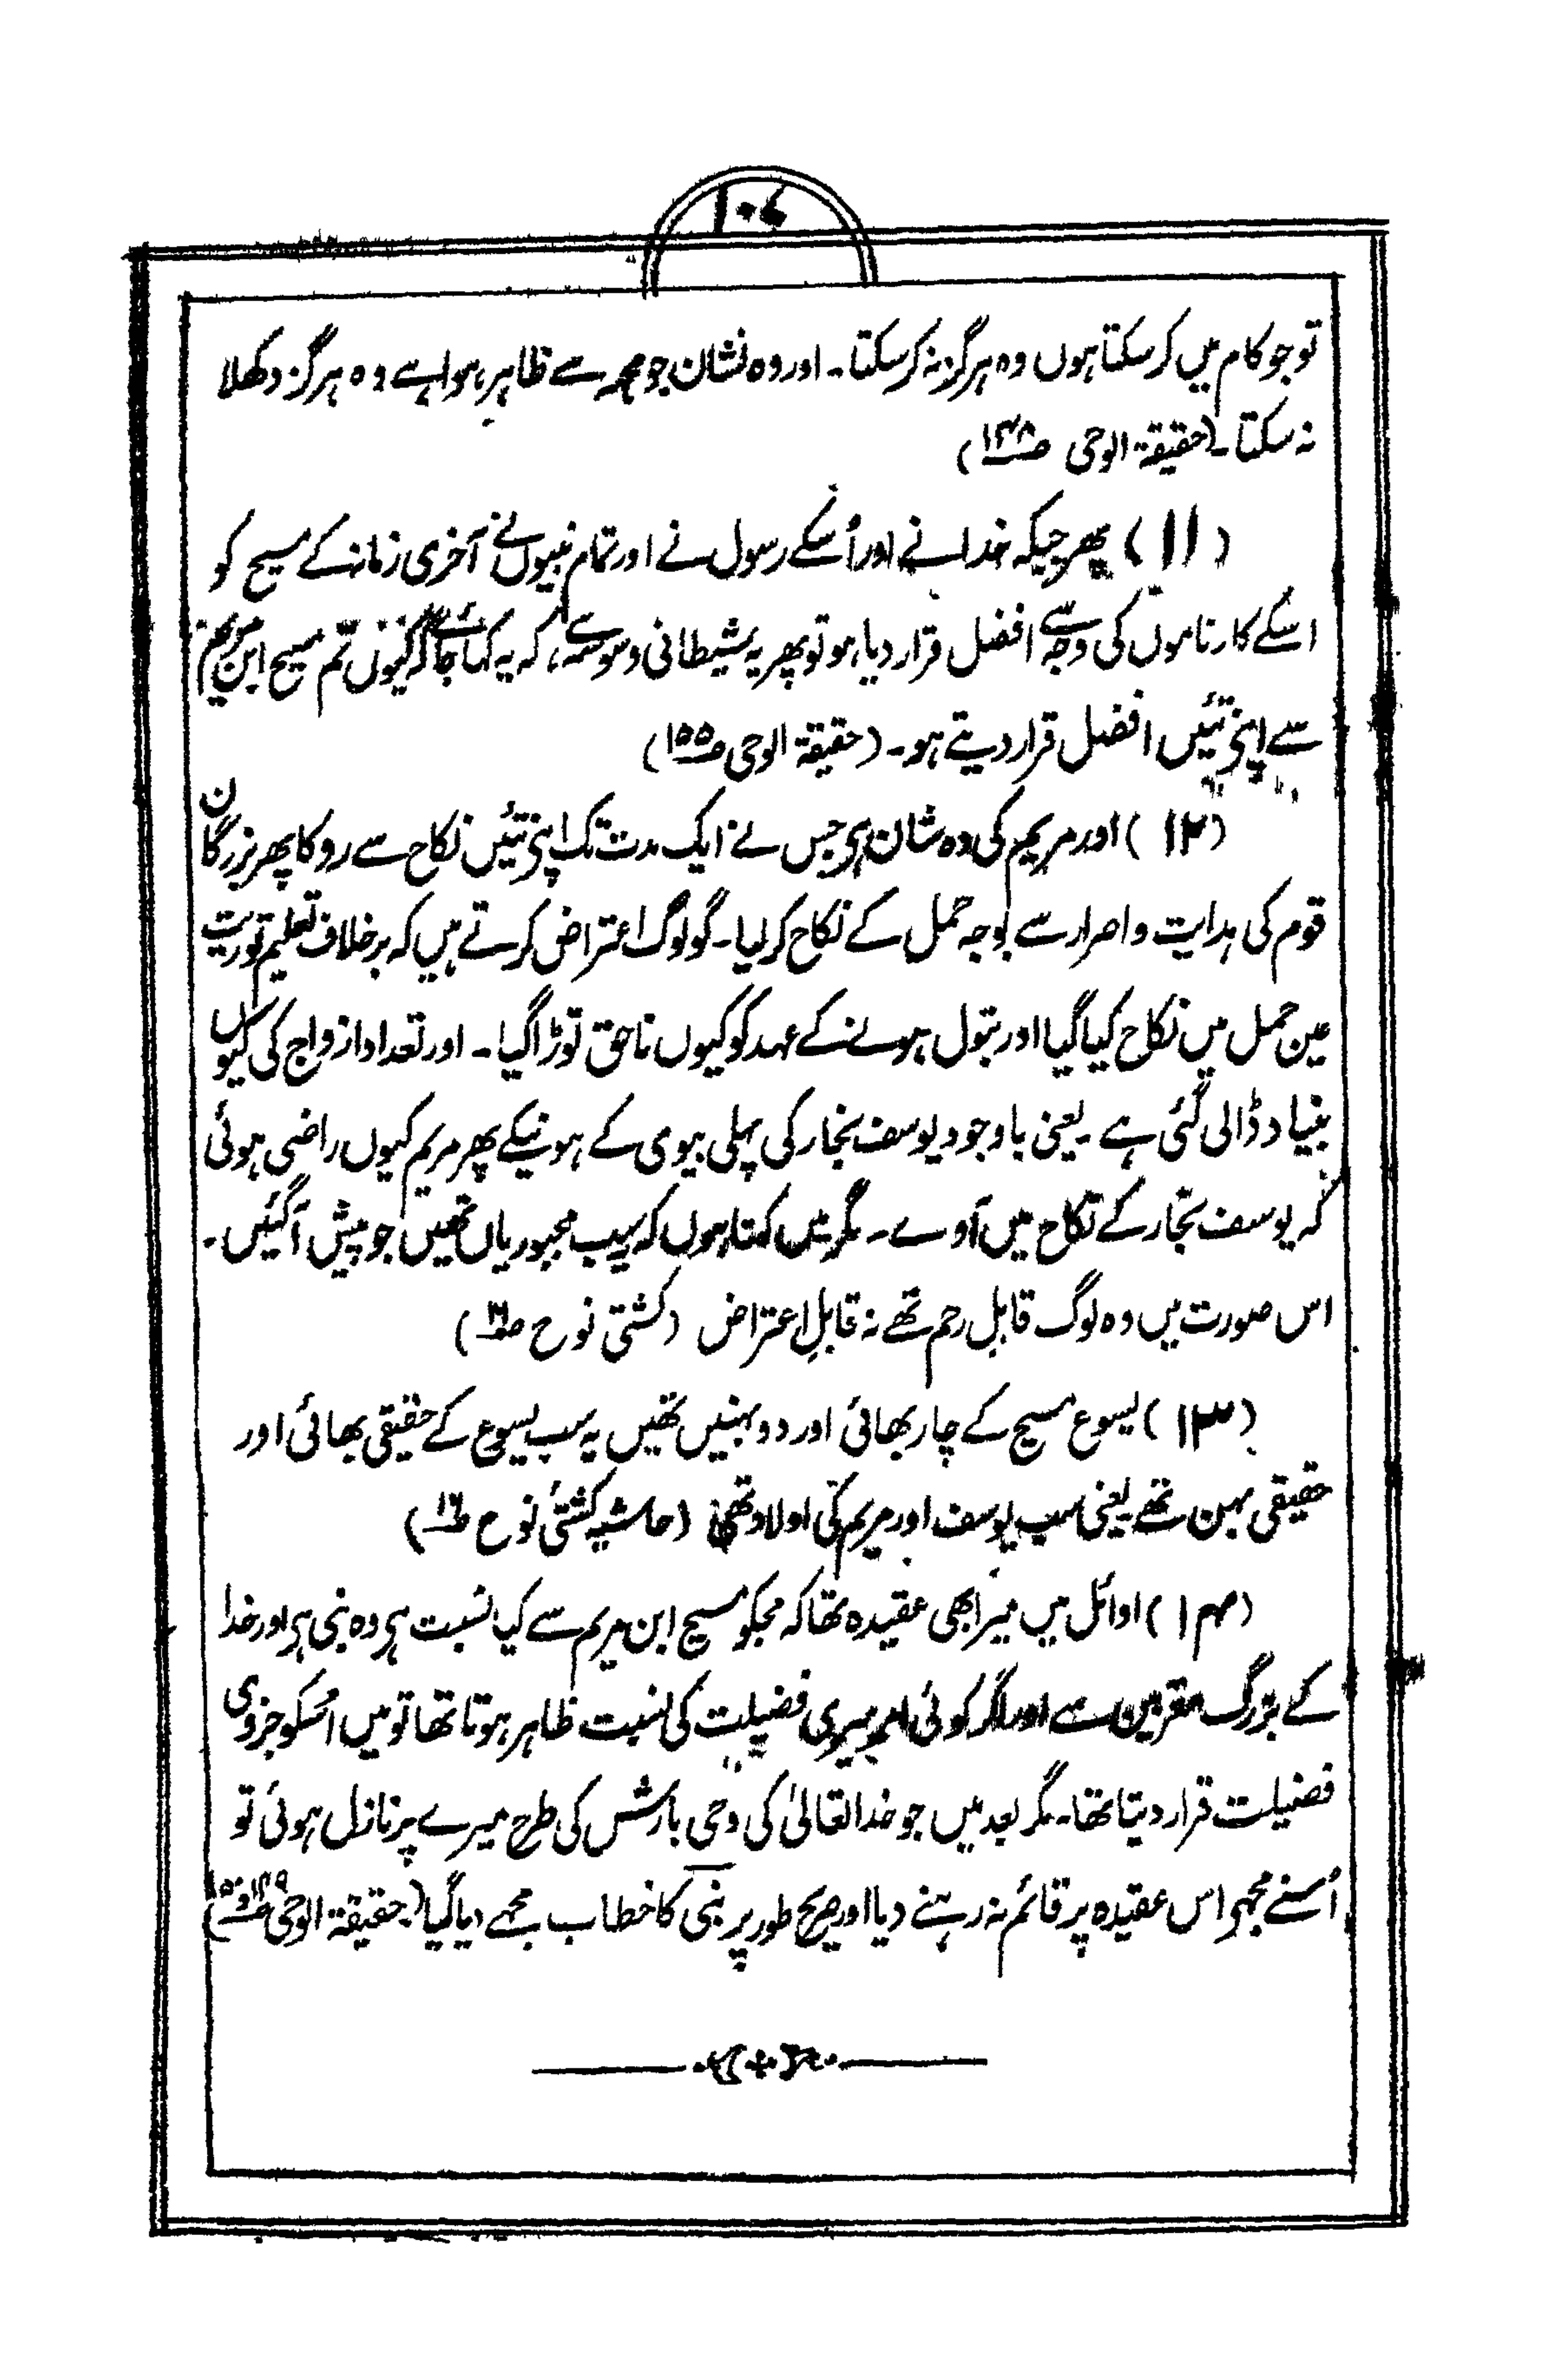 ۱۰۷
تو جو کام میں کر سکتا ہوں وہ ہرگز نہ کر سکتا۔ اور وہ نشان جو مجھ سے ظاہر ہوا ہے وہ ہرگز دکھلا
نہ سکتا۔ (حقیقۃ الوحی صـ۱۴۸)
(۱۱) پھر جبکہ خدا نے اور اُسکے رسول نے اور تمام نبیوں نے آخری زمانہ کے مسیح کو
اسکے کارناموں کی وجہ سے افضل قرار دیا ہو تو پھر یہ شیطانی وسوسہ ہے، کہ یہ کہا جائے کہ کیوں تم مسیح ابن مریم
سے اپنے تئیں افضل قرار دیتے ہو۔ (حقیقۃ الوحی صـ۱۵۵)
(۱۲) اور مریم کی وہ شان ہے جس نے ایک مدت تک اپنے تئیں نکاح سے روکا پھر بزرگان
قوم کی ہدایت و اصرار سے بوجہ حمل کے نکاح کر لیا۔ گو لوگ اعتراض کرتے ہیں کہ برخلاف تعلیم توریت
عین حمل میں نکاح کیا گیا اور بتول ہونے کے عہد کو کیوں ناحق توڑا گیا۔ اور تعداد ازواج کی کیوں
بنیاد ڈالی گئی ہے۔ یعنی باوجود یوسف نجار کی پہلی بیوی کے ہونیکے پھر مریم کیوں راضی ہوئی
کہ یوسف نجّار کے نکاح میں آوے۔ مگر میں کہتا ہوں کہ یہ سب مجبوریاں تھیں جو پیش آ گئیں۔
اس صورت میں وہ لوگ قابلِ رحم تھے نہ قابلِ اعتراض (کشتی نوح صـ۱۶)
(۱۳) یسوع مسیح کے چار بھائی اور دو بہنیں تھیں یہ سب یسوع کے حقیقی بھائی اور
حقیقی بہن تھے یعنی سب یوسف اور مریم کی اولاد تھی (حاشیہ کشتی نوح صـ۱۶)
(۱۴) اوائل میں میرا بھی عقیدہ تھا کہ مجکو مسیح ابن مریم سے کیا نسبت ہے وہ نبی ہے اور خدا
کے بزرگ مقربین سے اور اگر کوئی امر میری فضیلت کی نسبت ظاہر ہوتا تھا تو میں اسکو جزوی
فضیلت قرار دیتا تھا۔ مگر بعد میں جو خدا تعالیٰ کی وحی بارش کی طرح میرے پر نازل ہوئی تو
اُسنے مجھے اس عقیدہ پر قائم نہ رہنے دیا اور صریح طور پر نبی کا خطاب مجھے دیا گیا (حقیقۃ الوحی صـ۱۴۹ و ۱۵۰)